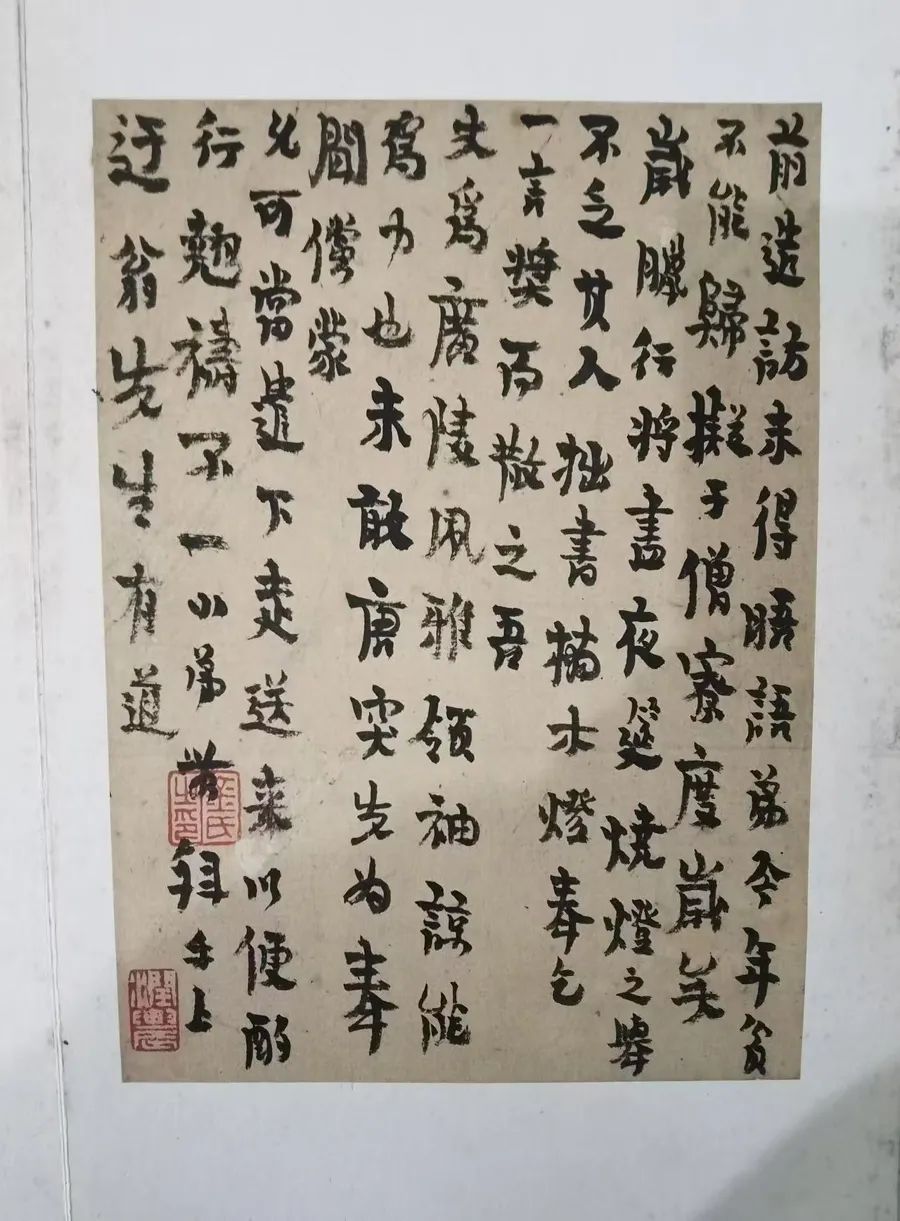 前造訪未得晤語弟今年貧
不能歸擬于僧寮度歲矣
歲臘行將晝夜筵燒燈之舉
不乏其人拙書木燈奉乞
一言奬而散之吾
丈爲廣陵風雅領袖諒能
爲力也未敢唐突先为奉
聞儻蒙
允可當遣下走送來以便酌
行翹禱不一小弟農拜手上
迂翁先生有道
金氏之印